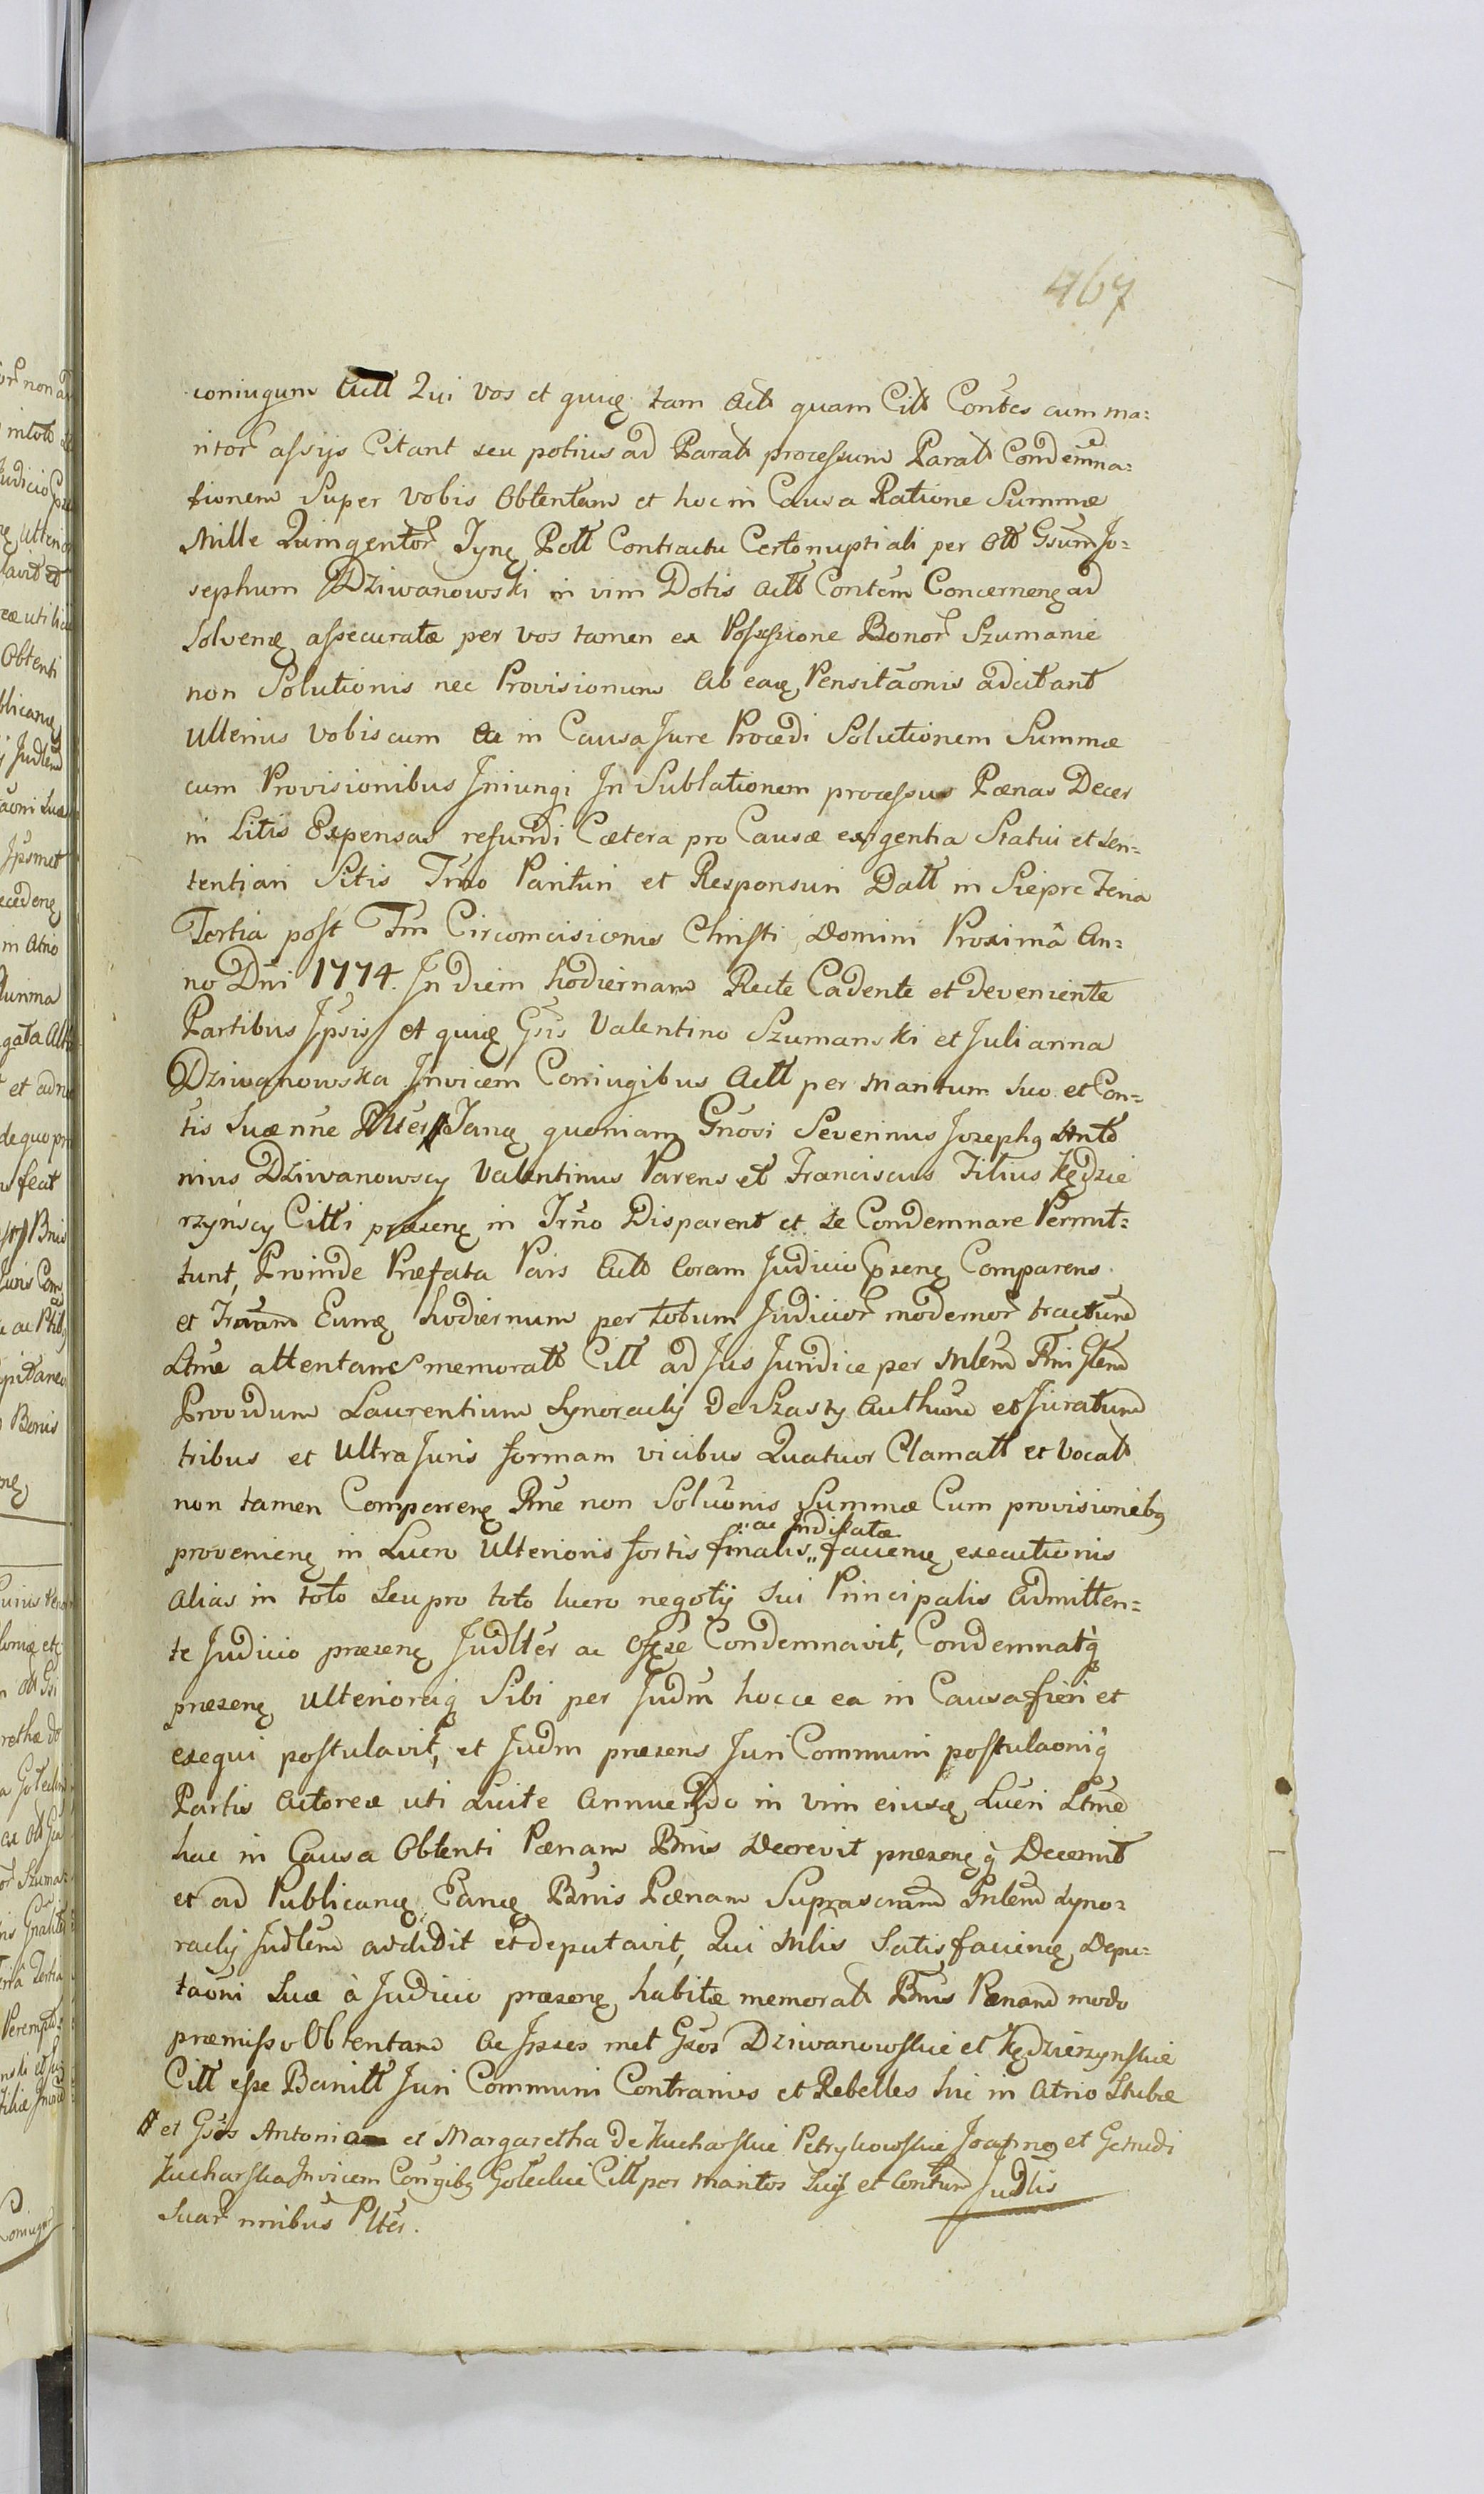 467
coniugum Actt Qui vos et quiᶒ tam Actt quam Citt Contes cum ma=
ritor assys Citant seu potius ad Paratt processum Paratt Condemna=
tionem Super vobis Obtentam et hoc in Causa Ratione Summæ
Mille Quingentor Pott Contractu Certo nuptiali per Gsum Jo=
sephum Dziwanowski in vim Dotis Actt Contem Concerneᶒ ad
Solvenᶒ assecuratæ per vos tamen ex Possessione Bonor Szumanie
non Solutionis nec Provisionum Ab eaᶒ Pensitaonis adcitant
Ulterius Vobiscum ea in Causa Jure Procedi Solutionem Summæ
cum Provisionibus Jniungi Jn Sublationem processus Pænas Decer
ni Litis Expensas refundi Cætera pro Causæ exigentia Statui et Sen=
tentiari Sitis Trno Parituri et Responsuri Datt in Sierpc Feria
Tertia post Ftm Circumcisionis Christi Domini Proximâ An=
no Dni 1774. Jn diem hodiernam Recte Cadente et deveniente
Partibus Jpsis et quiᶒ Gsis Valentino Szumanski et Julianna
Dziwanowska Jnvicem Coniugibus Actt per Maritum Suo et Con=
tis Suæ nne quoniam Gnosi Severinus Josephꝯ Anto
nius Dziwanowscy Valentinus Parens et Franciscus Filius Kędzie
rzynscy Citti præsenᶒ in Trno Disparent et se Condemnare Permit=
tunt, Proinde Præfata Pars Actt Coram Judicio præsenᶒ Comparens
et Eunᶒ hodiernum per totum Judicior modernor tractum
Ltme attentans memoratt Citt ad Jus Juridice per Mlem
Providum Laurentium Synoracky de Szasty Authum et Juratum
tribus et Ultra Juris formam vicibus Quatuor Clamatt et Vocatt
non tamen Compareneᶒ Rne non Soluonis Summæ Cum provisionibꝯ
provenienᶒ in Lucro Ulterioris fortis finalis „ ac Judicatæ „ faciendᶒ executionis
Alias in toto Seu pro toto lucro negotÿ Sui Principalis Admitten=
te Judicio præsenᶒ Judlter ac Condemnavit, Condemnatq̀
præsenᶒ Ulterioraqꝫ Sibi per Judm hocce ea in Causa fieri et
exequi postulavit, et Judm præsens Juri Communi postulaoniq̀
Partis Actoreæ uti Licite Annuendo in vim eiusᶒ Lucri Ltme
hac in Causa Obtenti Pænam Bnis Decrevit præsenᶒ q̀ Decernit
et ad Publicanᶒ Eanᶒ Bnis Pœnam Suprascram Mlem Syno=
racky Judlem addidit et deputavit, Qui Mlis Satisfaciendᶒ Depu=
taoni Suæ à Judicio præsenᶒ habitæ memoratt Bnis Pænam modo
præmisso Obtentam Ac Jpsos met Gsos Dziwanowskie et Kędzierzynskie
Citt esse Banitt Juri Communi Contrarios et Rebelles hic in Atrio Stubæ
et Gsos Antoniam et Margaretha de Kucharskie Petrykowskie Joannꝯ et Gertrudi
Kucharska Jnvicem Congibꝯ Goleckie Citt per Maritos Suos et Contum
Suar nnibus Plter.
Judlis